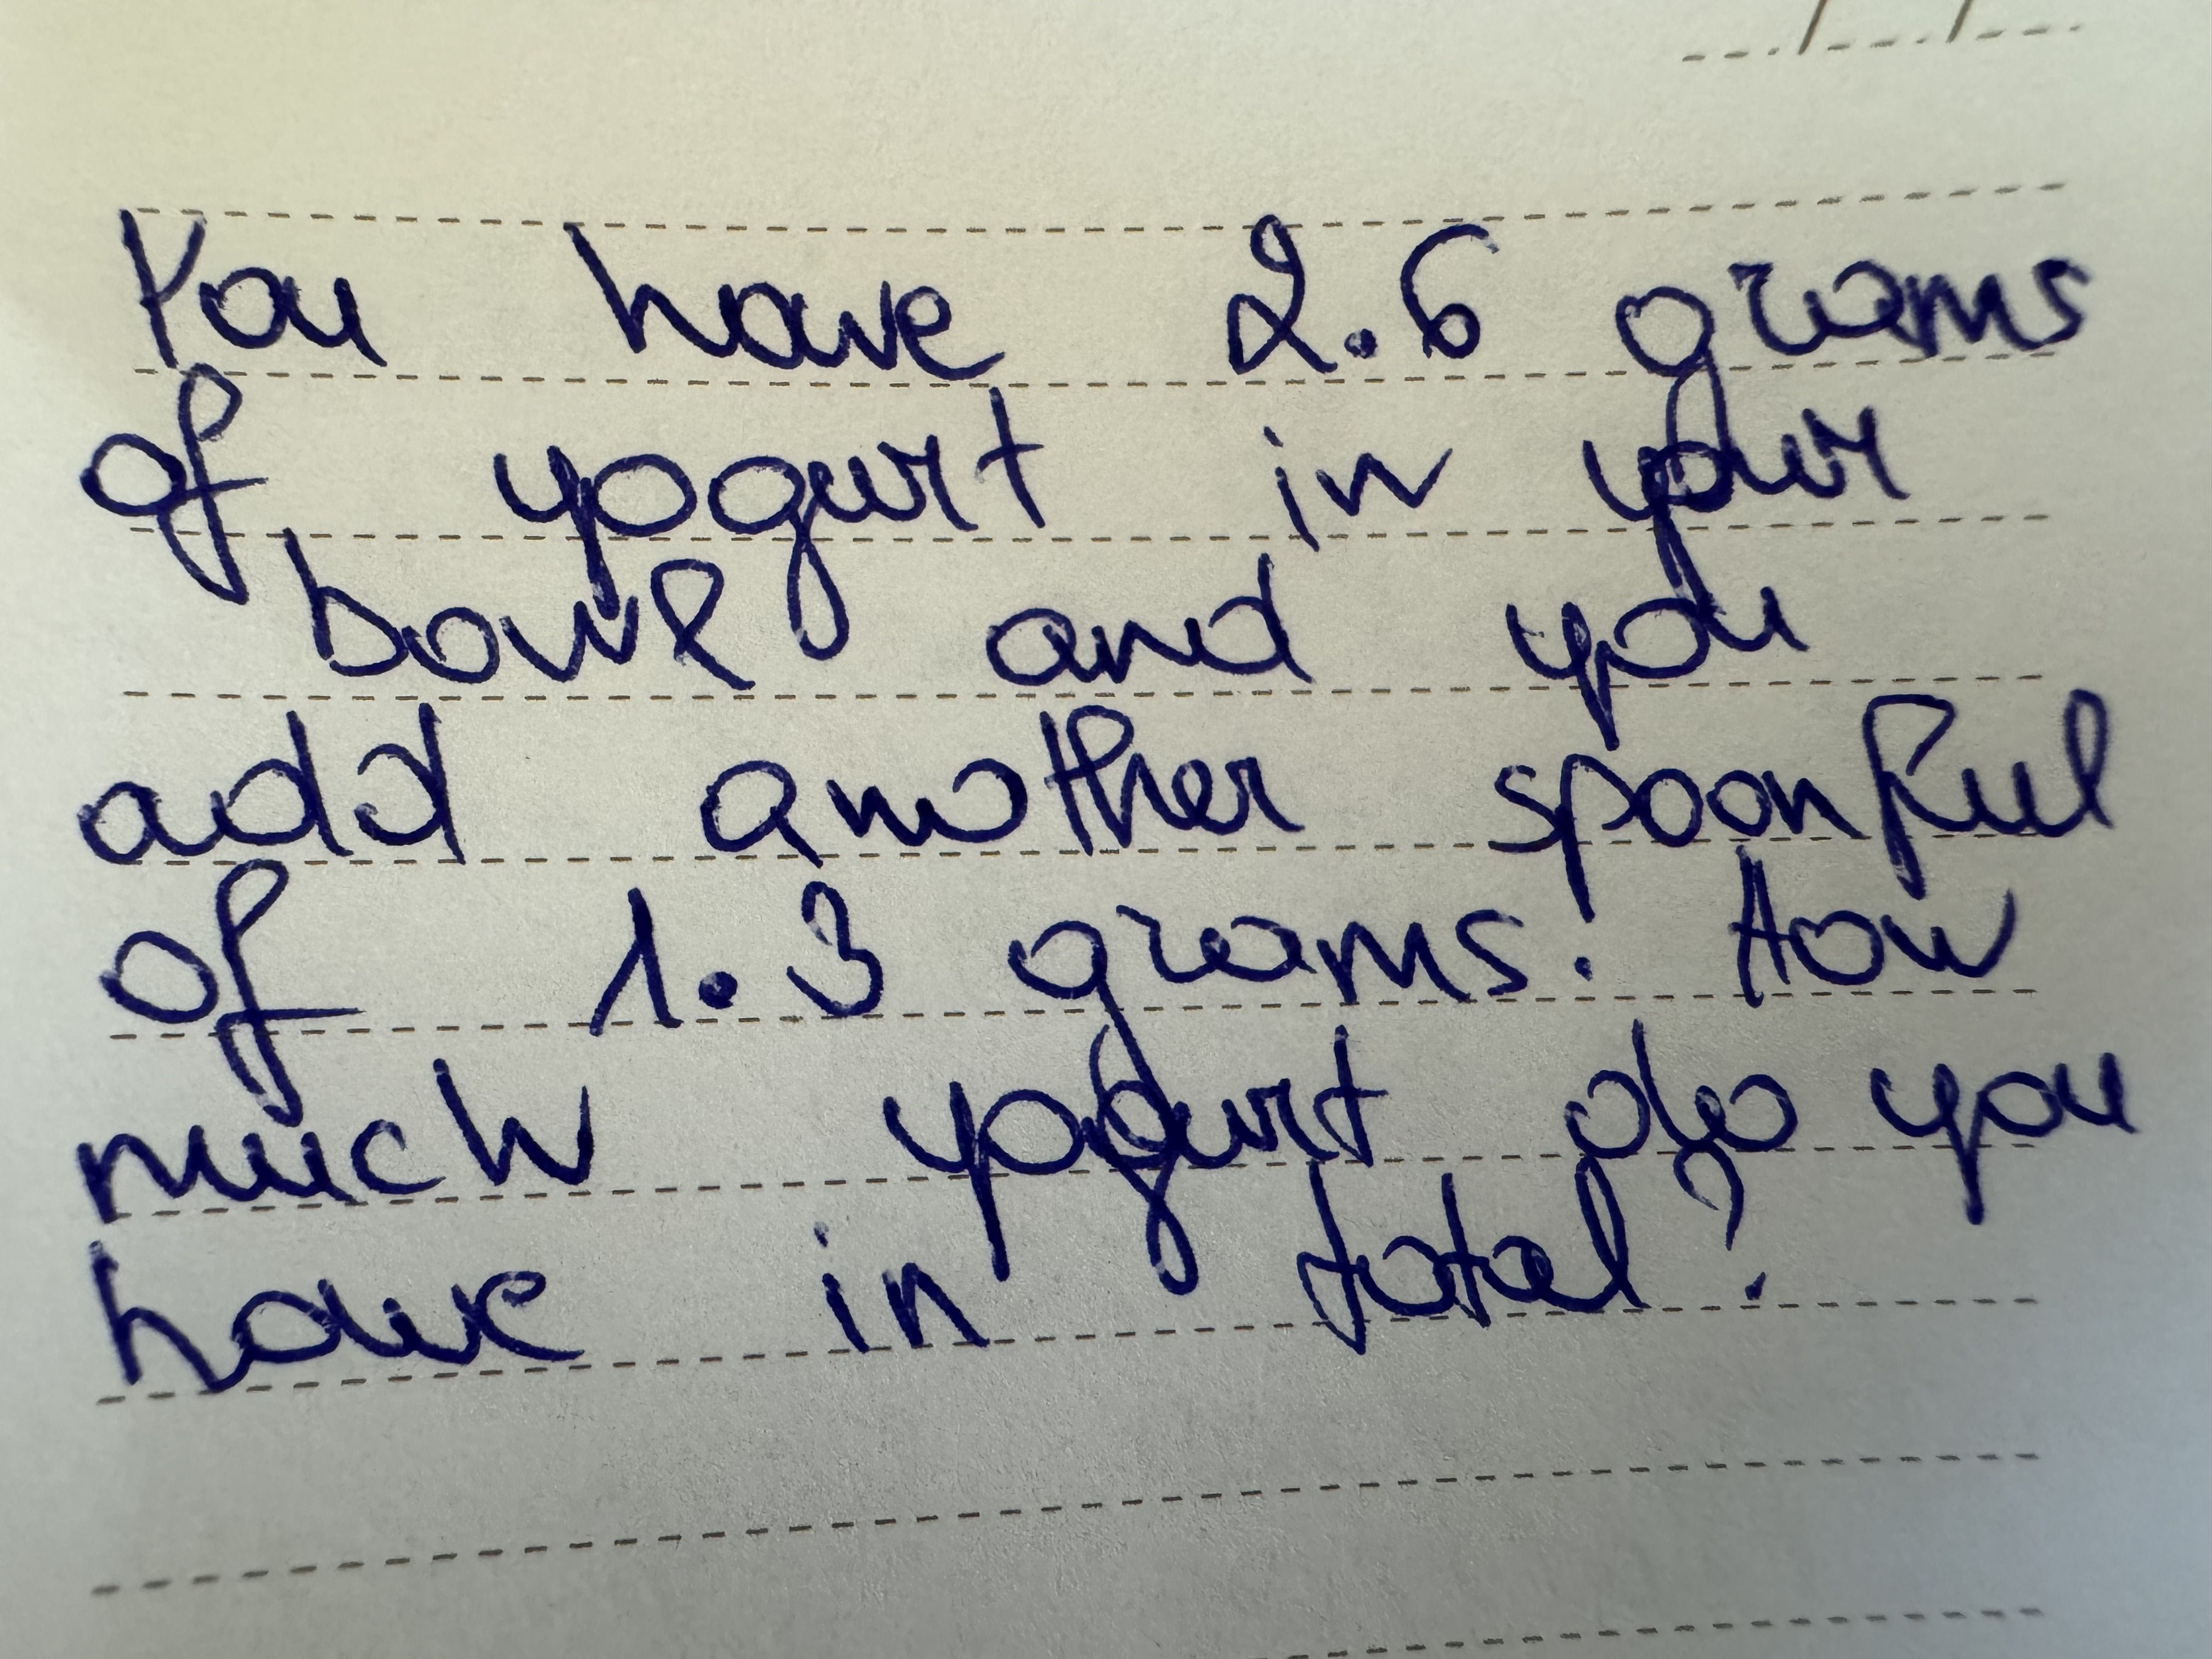 You have 2.6 grams
of yogurt in your
bowl and you
add another spoonful
of 1.3 grams. How
much yogurt do you
have in total?